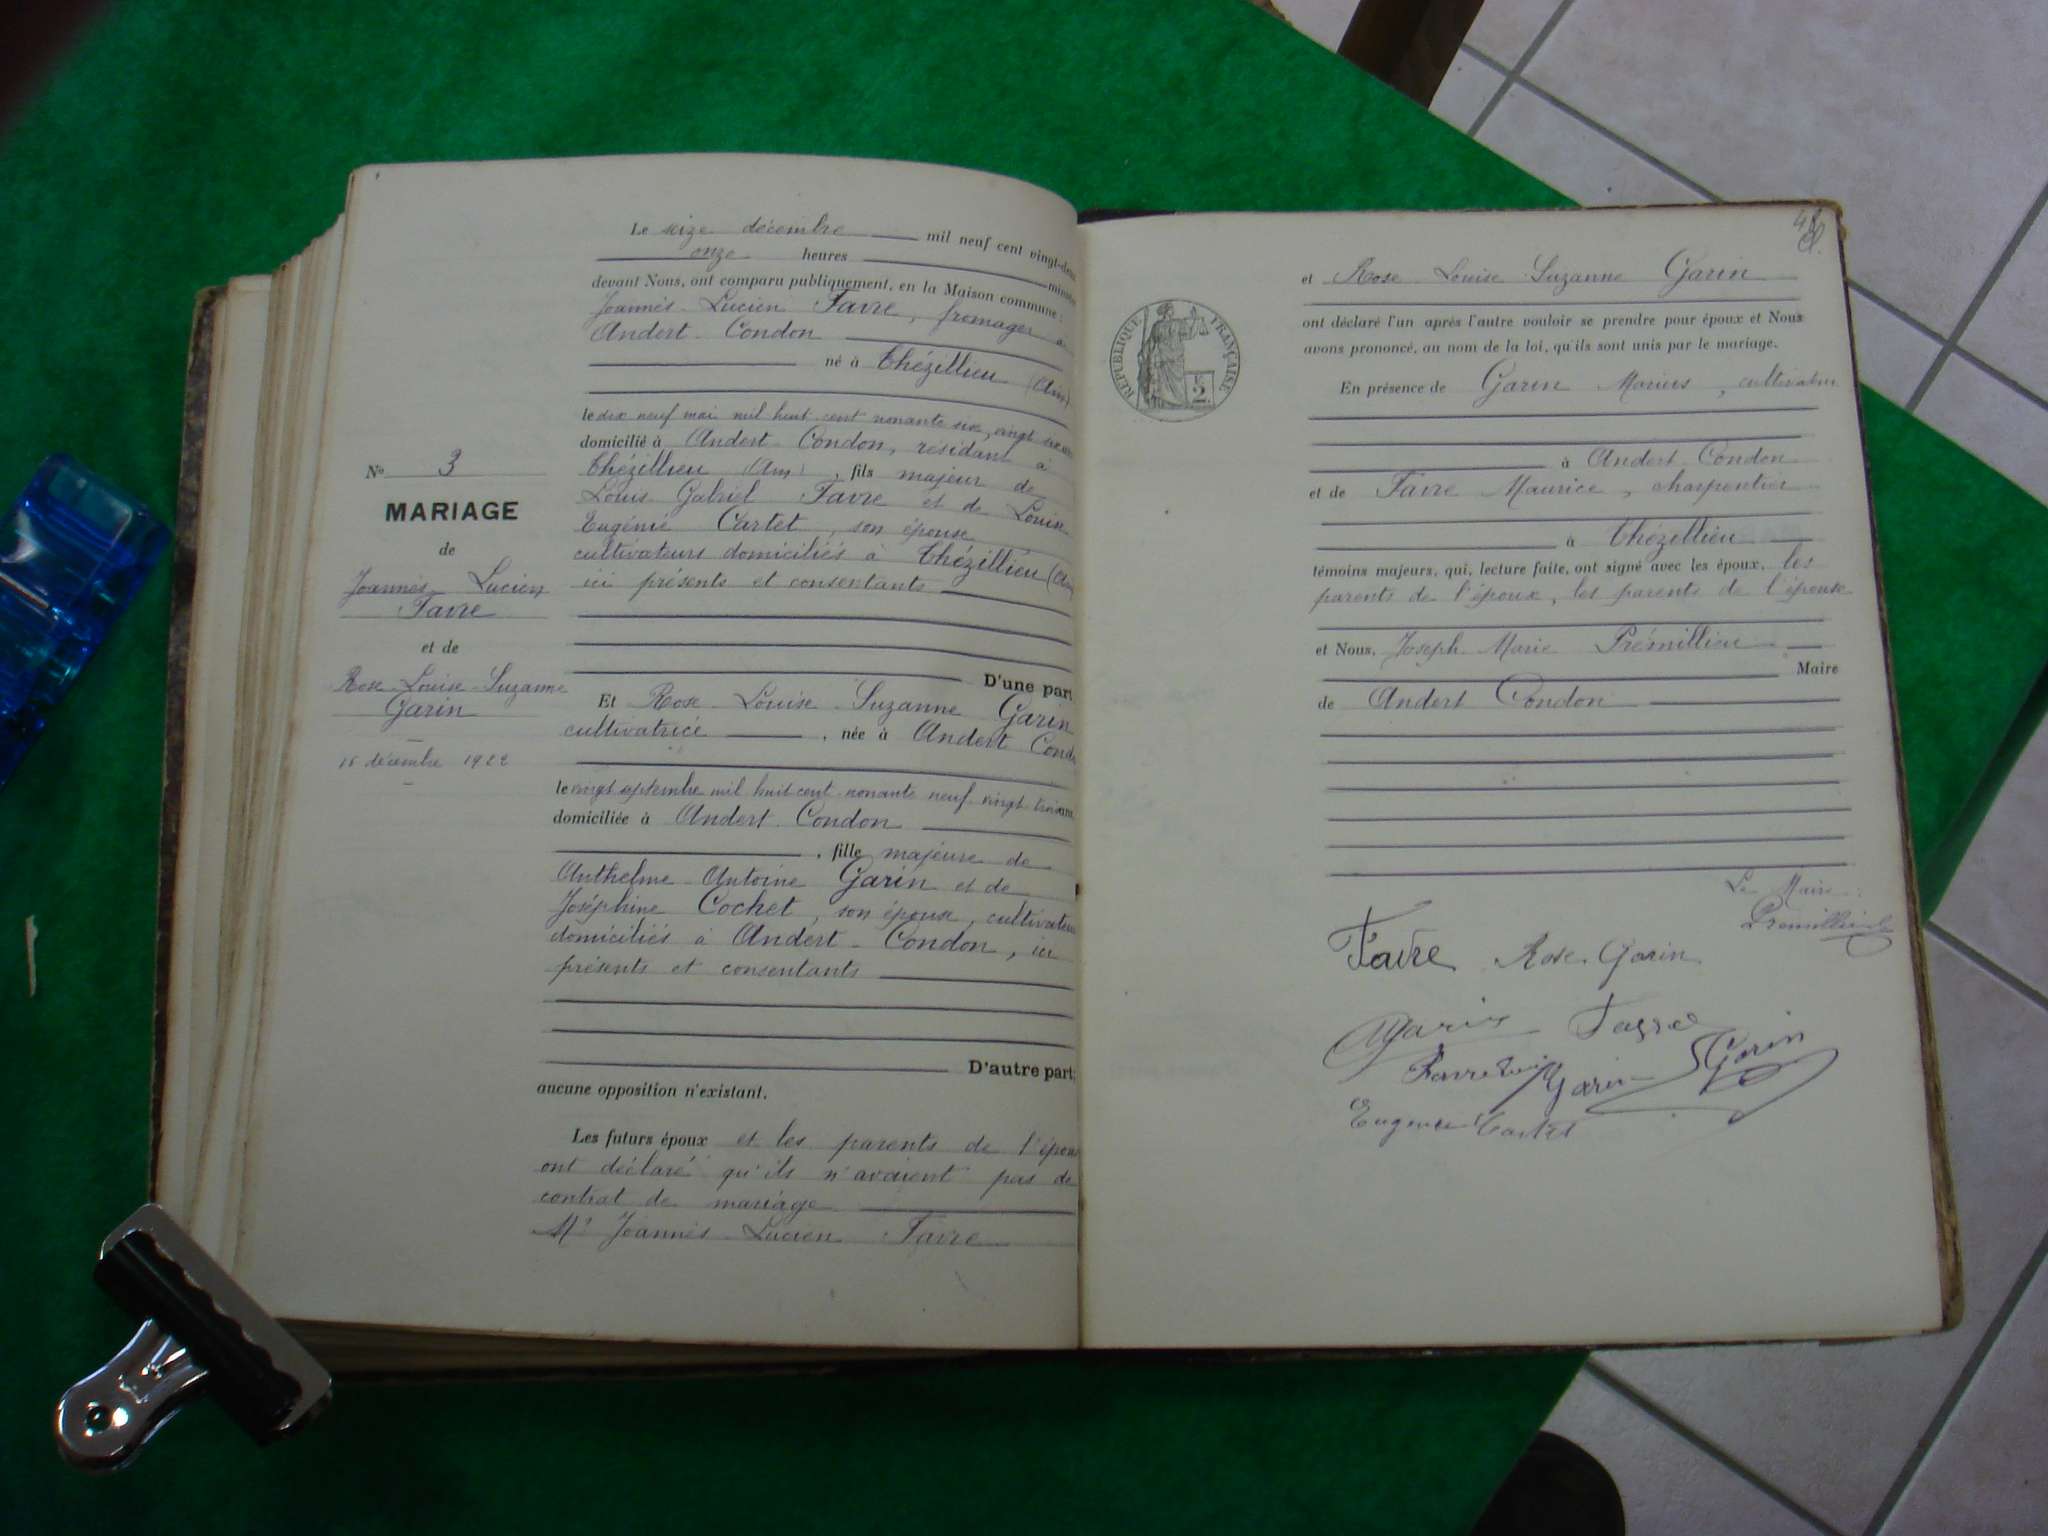 Le seize décembre mil neuf cent vingt-deux
onze heures minutes
devant Nous, ont comparu publiquement, en la Maison commune :
Joannès Lucien Favre, fromager à
Andert-Condon
né à Thézillieu (Ain)
le dix neuf mai mil huit cent nonante six, vingt six ans
domicilié à Andert-Condon, résidant à
Thézillieu (Ain), fils majeur de
Louis Gabriel Favre et de Louise
Eugénie Cartet, son épouse
cultivateurs domiciliés à Thézillieu (Ain)
ici présents et consentants
D'une part
Et Rose-Louise-Suzanne Garin
cultivatrice, née à Andert Condon
le vingt septembre mil huit cent nonante neuf, vingt trois ans
domiciliée à Andert-Condon
, fille majeure de
Anthelme-Antoine Garin et de
Joséphine Cochet, son épouse, cultivateurs
domiciliés à Andert-Condon, ici
présents et consentants
D'autre part;
aucune opposition n'existant.
Les futurs époux et les parents de l'époux
ont déclaré qu'ils n'avaient pas de
contrat de mariage
Mr Joannès-Lucien Favre
No 3
MARIAGE
de
Joannès-Lucien
Favre
et de
Rose-Louise-Suzanne
Garin
16 décembre 1922
RÉPUBLIQUE FRANÇAISE
2
et Rose-Louise-Suzanne Garin
ont déclaré l'un après l'autre vouloir se prendre pour époux et Nous
avons prononcé, au nom de la loi, qu'ils sont unis par le mariage.
En présence de Garin Marius, cultivateur
à Andert-Condon
et de Favre Maurice, charpentier
à Thézillieu
témoins majeurs, qui, lecture faite, ont signé avec les époux, les
parents de l'époux, les parents de l'épouse
et Nous, Joseph-Marie Prémillieu
Maire
de Andert Condon
Le Maire :
Prémillieu
Favre Rose Garin
Garin
Garin
Eugénie Cartet